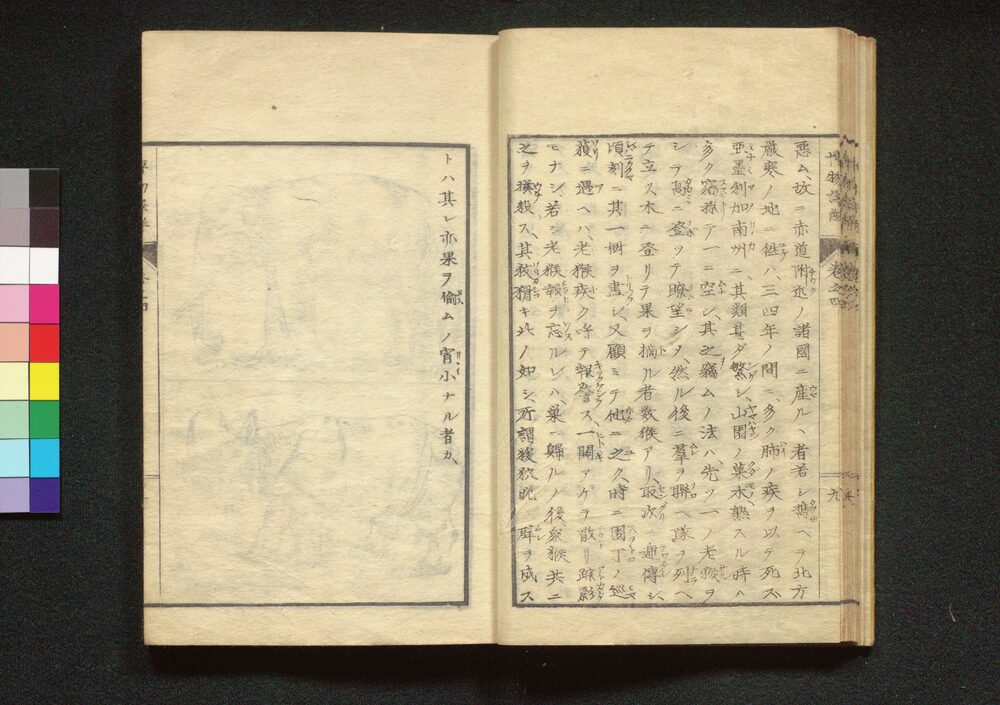 惡ム、故ニ赤道附近ノ諸國ニ産ルヽ者若シ携ヘテ北方
嚴寒ノ地ニ徃ハ、三四年ノ間ニ、多ク肺ノ疾ヲ以テ死ス、
亜墨利加南州ニ其類甚ダ繁シ、山園ノ菓木熟スル時ハ
多ク竊掠テ一ニ空シ、其之竊ムノ法ハ先ツ一ノ老猴ヲ
シテ高ニ登ツテ瞭望シヲ、然ル後ニ羣ヲ聯ヘ隊ヲ列ヘ
テ立ス、木ニ登リテ果ヲ摘ル者数猴アリ、取次ニ逓傳シ、
頃刻ニ其一樹ヲ盡シ、又顧ミテ他ニ之ク、時ニ園丁ノ巡
邏ニ遇ヘハ、老猴疾ク呼テ報ス、一鬨アケテ散リ踪影
モナシ、若シ老猴報ヲ忘ルレハ、巣ニ歸ルノ後衆猴共ニ
之ヲ撲殺ス、其狡猾キ此ノ如シ、所謂狻狁晩ニ群ヲ成ス
トハ其レ亦果ヲ偸ムノ宵小ナル者カ、
卷之四
九